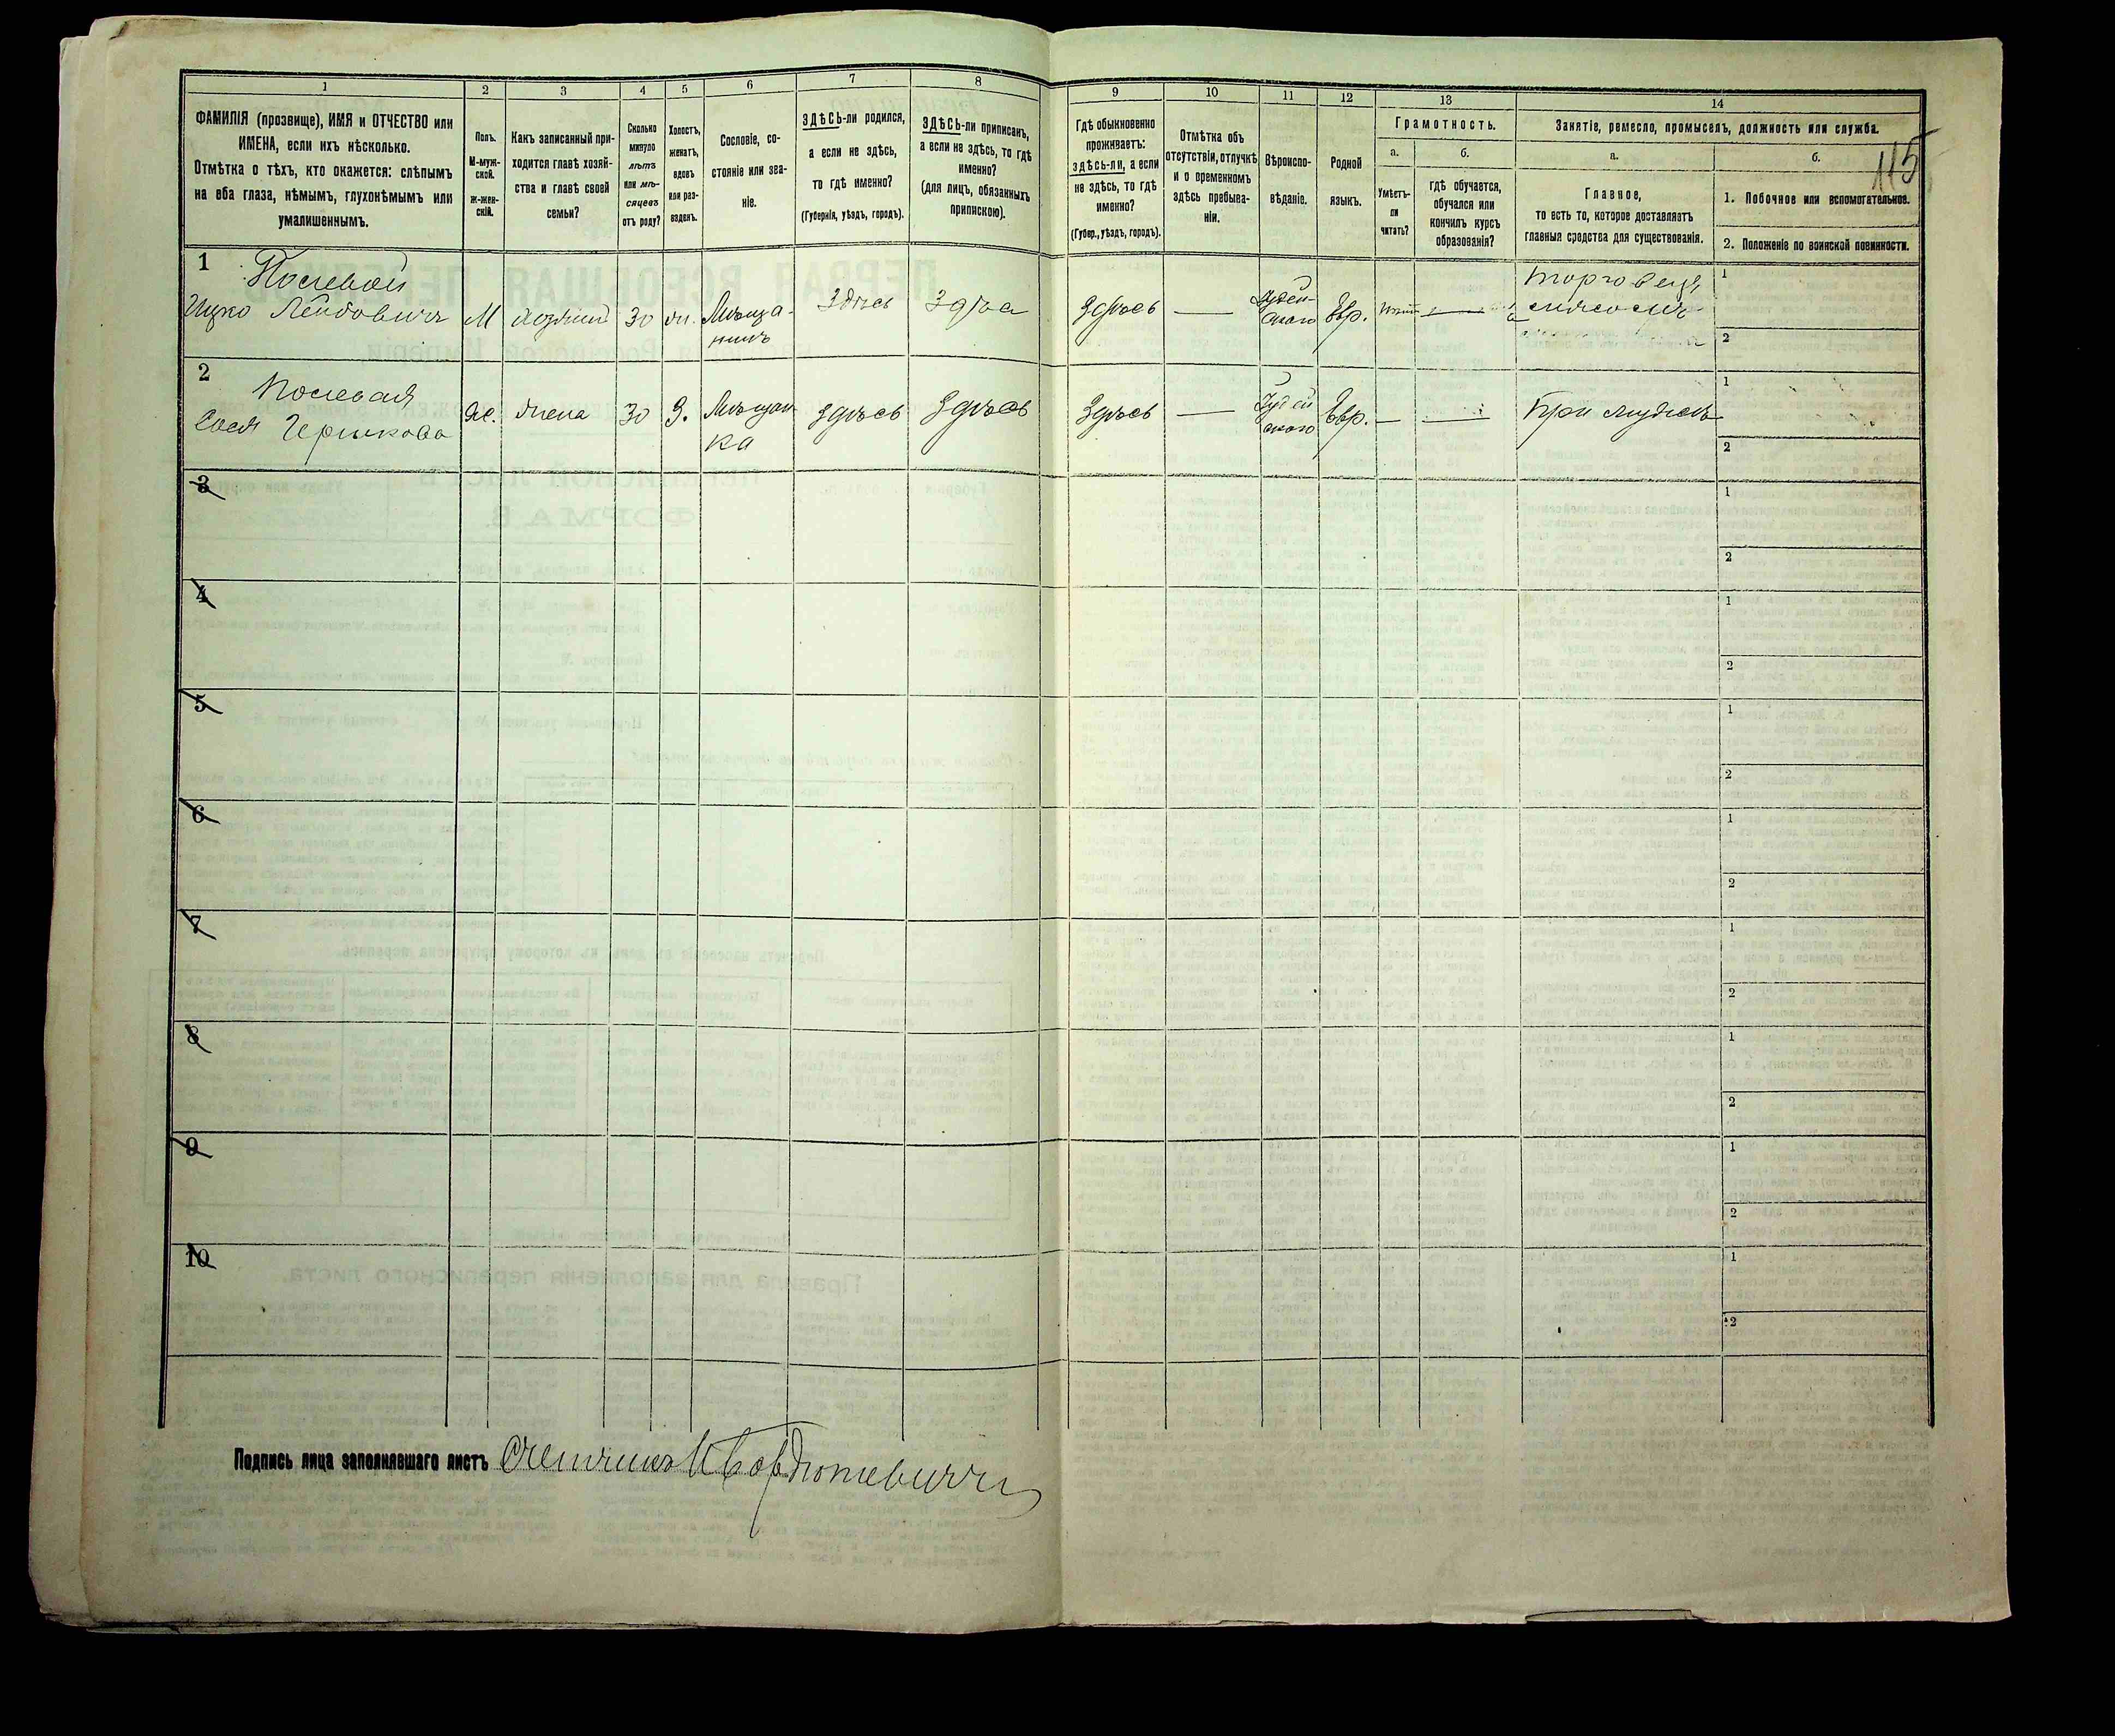 115
1
2
3
4
5
6
7
8
9
10
11
12
13
14
ФАМИЛІЯ (прозвище), ИМЯ и ОТЧЕСТВО или
ИМЕНА, если ихъ нѣсколько.
Отмѣтка о тѣхъ, кто окажется: слѣпымъ
на оба глаза, нѣмымъ, глухонѣмымъ или
умалишеннымъ.
Полъ.
М-муж-
ской.
Ж-жен-
скій.
Какъ записанный при-
ходится главѣ хозяй-
ства и главѣ своей
семьи?
Сколько
минуло
лѣтъ
или мѣ-
сяцевъ
отъ роду?
Холостъ,
женатъ,
вдовъ
или раз-
веденъ.
Сословіе, со-
стояніе или зва-
ніе.
ЗДѢСЬ-ли родился,
а если не здѣсь,
то гдѣ именно?
(Губернія, уѣздъ, городъ).
ЗДѢСЬ-ли приписанъ,
а если не здѣсь, то гдѣ
именно?
(для лицъ, обязанныхъ
припискою).
Гдѣ обыкновенно
проживаетъ:
здѣсь-ли, а если
не здѣсь, то гдѣ
именно?
(Губер., уѣздъ, городъ).
Отмѣтка объ
отсутствіи, отлучкѣ
и о временномъ
здѣсь пребыва-
ніи.
Вѣроиспо-
вѣданіе.
Родной
языкъ.
Грамотность.
а.
Умѣетъ-
ли
читать?
б.
гдѣ обучается,
обучался или
кончилъ курсъ
образованія?
Занятіе, ремесло, промыселъ, должность или служба.
а.
Главное,
то есть то, которое доставляетъ
главныя средства для существованія.
б.
1. Побочное или вспомогательное.
2. Положеніе по воинской повинности.
1
Полевой
Ицко Лейбовичъ
М
хозяинъ
30
ж.
Мѣща-
нинъ
Здѣсь
Здѣсь
Здѣсь
—
Іудей-
ского
Евр.
—
торговецъ
1
2
2
Полевая
Гершкова
Ж.
жена
30
З.
Мѣщан
ка
здѣсь
здѣсь
здѣсь
—
Іудей
ского
Евр.
—
—
При мужѣ
1
2
3
1
2
4
1
2
5
1
2
6
1
2
7
1
2
8
1
2
9
1
2
10
1
2
Подпись лица заполнявшаго листъ Счетчикъ